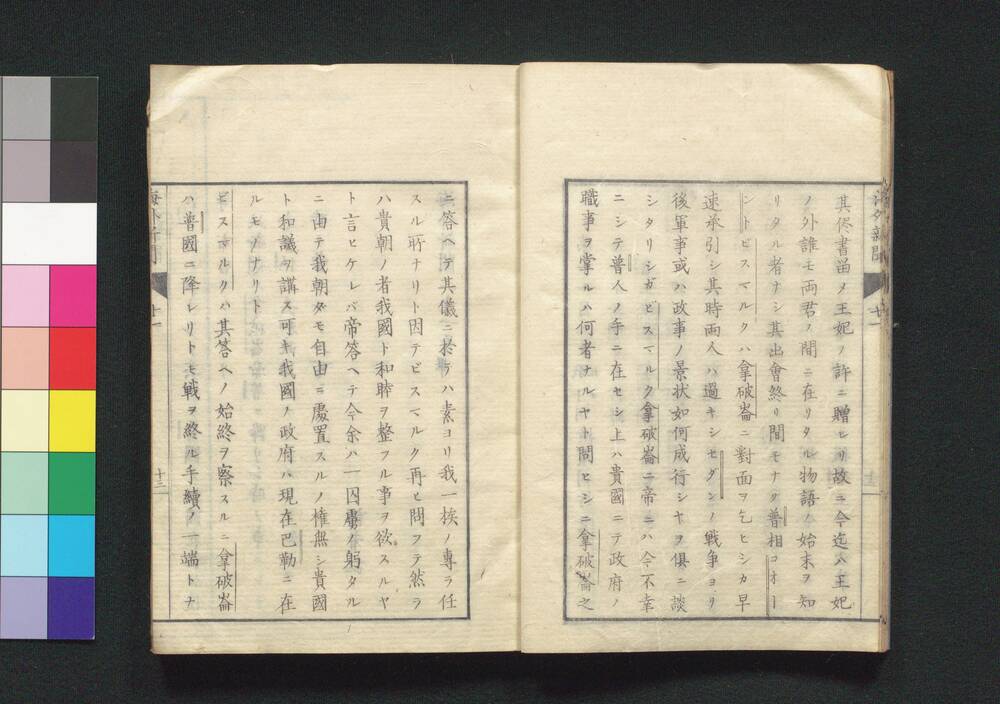 其侭書畄メ王妃ノ許ニ贈ヒリ故ニ今迄ハ王妃
ノ外誰モ両君ノ間ニ在リタル物語ノ始末ヲ知
リタル者ナシ其出會終リ間モナク普相コオー
ントビスマルクハ拿破崙ニ對面ヲ乞ヒシカ早
速承引シ其時両人ハ過キシセダンノ戦争ヨリ
後軍事或ハ政事ノ景状如何成行シヤヲ倶ニ談
シタリシガビスマルク拿破崙ニ帝ニハ今不幸
ニシテ普人ノ手ニ在セシ上ハ貴國ニテ政府ノ
職事ヲ掌ルハ何者ナルヤト問ヒシニ拿破崙之
ニ答ヘテ其儀ニ於テハ素ヨリ我一族ノ專ラ任
スル所ナリト因テビスマルク再ヒ問フテ然ラ
ハ貴朝ノ者我國ト和睦ヲ整フル事ヲ欲スルヤ
ト言ヒケレバ帝答ヘテ今余ハ一囚虜ノ躬タル
ニ由テ我朝タモ自由ニ處置スルノ權無シ貴國
ト和議ヲ講ス可キ我國ノ政府ハ現在巴勒ニ在
ルモノナリト
ビスマルクハ其答ヘノ始終ヲ察スルニ拿破崙
ハ普國ニ降レリトモ戦ヲ終ル手續ノ一端トナ
海外新聞
廿一
十三